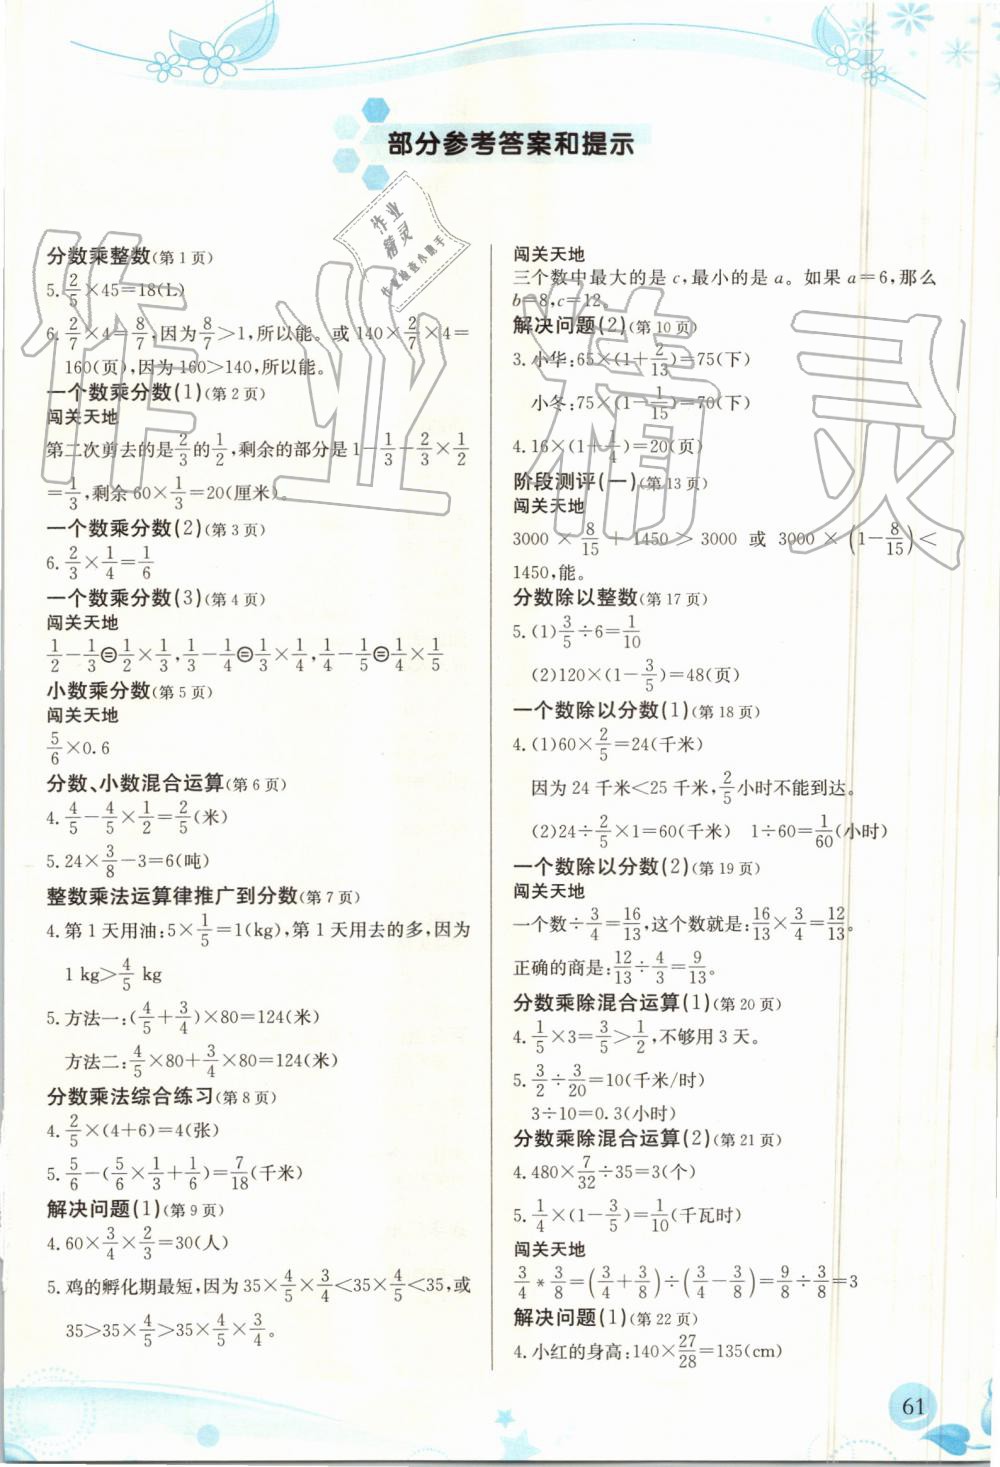 部分参考答案和提示
作业
精灵
作业检查小助手
分数乘整数(第 1 页)
5. 2/5×45=18(L)
6. 2/7×4=8/7,因为8/7>1,所以能。或 140×2/7×4=
160(页),因为 160>140,所以能。
一个数乘分数(1)(第 2 页)
闯关天地
第二次剪去的是2/3的1/2,剩余的部分是1-1/3-2/3×1/2
=1/3,剩余 60×1/3=20(厘米)。
一个数乘分数(2)(第 3 页)
6. 2/3×1/4=1/6
一个数乘分数(3)(第 4 页)
闯关天地
1/2-1/3㊀1/2×1/3,1/3-1/4㊀1/3×1/4,1/4-1/5㊀1/4×1/5
小数乘分数(第 5 页)
闯关天地
5/6×0.6
分数、小数混合运算(第 6 页)
4. 4/5-4/5×1/2=2/5(米)
5. 24×3/8-3=6(吨)
整数乘法运算律推广到分数(第 7 页)
4. 第 1 天用油:5×1/5=1(kg),第 1 天用去的多,因为
1 kg>4/5 kg
5. 方法一:(4/5+3/4)×80=124(米)
方法二:4/5×80+3/4×80=124(米)
分数乘法综合练习(第 8 页)
4. 2/5×(4+6)=4(张)
5. 5/6-(5/6×1/3+1/6)=7/18(千米)
解决问题(1)(第 9 页)
4. 60×3/4×2/3=30(人)
5. 鸡的孵化期最短,因为 35×4/5×3/4<35×4/5<35,或
35>35×4/5>35×4/5×3/4。
闯关天地
三个数中最大的是 c,最小的是 a。如果 a=6,那么
b=8,c=12。
解决问题(2)(第 10 页)
3. 小华:65×(1+2/13)=75(下)
小冬:75×(1-1/15)=70(下)
4. 16×(1+1/4)=20(页)
阶段测评(一)(第 13 页)
闯关天地
3000×8/15+1450>3000 或 3000×(1-8/15)<
1450,能。
分数除以整数(第 17 页)
5. (1)3/5÷6=1/10
(2)120×(1-3/5)=48(页)
一个数除以分数(1)(第 18 页)
4. (1)60×2/5=24(千米)
因为 24 千米<25 千米,2/5小时不能到达。
(2)24÷2/5×1=60(千米) 1÷60=1/60(小时)
一个数除以分数(2)(第 19 页)
闯关天地
一个数÷3/4=16/13,这个数就是:16/13×3/4=12/13。
正确的商是:12/13÷4/3=9/13。
分数乘除混合运算(1)(第 20 页)
4. 1/5×3=3/5>1/2,不够用 3 天。
5. 3/2÷3/20=10(千米/时)
3÷10=0.3(小时)
分数乘除混合运算(2)(第 21 页)
4. 480×7/32÷35=3(个)
5. 1/4×(1-3/5)=1/10(千瓦时)
闯关天地
3/4*3/8=(3/4+3/8)÷(3/4-3/8)=9/8÷3/8=3
解决问题(1)(第 22 页)
4. 小红的身高:140×27/28=135(cm)
61
作业精灵